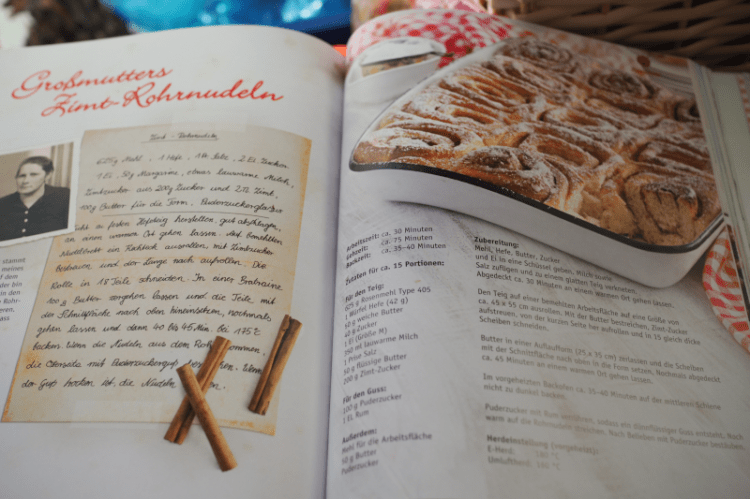 Großmutters
Zimt-Rohrnudeln
Zimt-Rohrnudeln
625g Mehl, 1 Hefe, 1 Pr. Salz, 2 El. Zucker
1 Ei, 50g Margarine, etwas lauwarme Milch,
Zimtzucker aus 200g Zucker und 2 El. Zimt,
100g Butter für die Form, Puderzuckerglasur
festen Hefeteig herstellen, gut abschlagen,
an einem warmen Ort gehen lassen. Auf bemehltem
Nudelbrett ein Rechteck auswellen, mit Zimtzucker
bestreuen und der Länge nach aufrollen. Die
Rolle in 18 Teile schneiden. In einer Bratraine
100 g Butter zergehen lassen und die Teile mit
der Schnittfläche nach oben hineinsetzen, nochmals
gehen lassen und dann 40 bis 45 Min. bei 175°C
backen. Wenn die Nudeln aus dem Rohr kommen,
die Oberseite mit Puderzuckerguß Wenn
der Guß trocken ist, die Nudeln
Arbeitszeit: ca. 30 Minuten
Gehzeit: ca. 75 Minuten
Backzeit: ca. 35-40 Minuten
Zutaten für ca. 15 Portionen:
Für den Teig:
625 g Rosenmehl Type 405
1 Würfel Hefe (42 g)
50 g weiche Butter
50 g Zucker
1 Ei (Größe M)
250 ml lauwarme Milch
1 Prise Salz
50 g flüssige Butter
200 g Zimt-Zucker
Für den Guss:
100 g Puderzucker
1 EL Rum
Außerdem:
Mehl für die Arbeitsfläche
50 g Butter
Puderzucker
Zubereitung:
Mehl, Hefe, Butter, Zucker
und Ei in eine Schüssel geben, Milch sowie
Salz zufügen und zu einem glatten Teig verkneten.
Abgedeckt ca. 30 Minuten an einem warmen Ort gehen lassen.
Den Teig auf einer bemehlten Arbeitsfläche auf eine Größe von
ca. 45 x 55 cm ausrollen. Mit der Butter bestreichen, Zimt-Zucker
aufstreuen, von der kurzen Seite her aufrollen und in 15 gleich dicke
Scheiben schneiden.
Butter in einer Auflaufform (25 x 35 cm) zerlassen und die Scheiben
mit der Schnittfläche nach oben in die Form setzen. Nochmals abgedeckt
ca. 45 Minuten an einem warmen Ort gehen lassen.
Im vorgeheizten Backofen ca. 35-40 Minuten auf der mittleren Schiene
nicht zu dunkel backen.
Puderzucker mit Rum verrühren, sodass ein dickflüssiger Guss entsteht. Noch
warm auf die Rohrnudeln streichen. Nach Belieben mit Puderzucker bestäuben.
Herdeinstellung (vorgeheizt):
E-Herd: 180 °C
Umluftherd: 160 °C